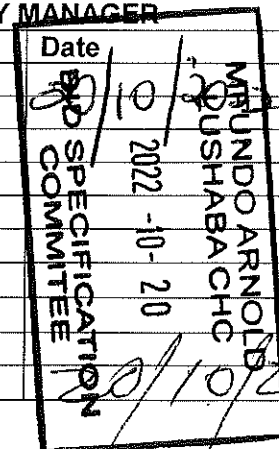 Y MANAGER
Date
MFUNDO ARNOLD
LUSHABA CHC
2022 -10- 20
BID SPECIFICATION
COMMITEE